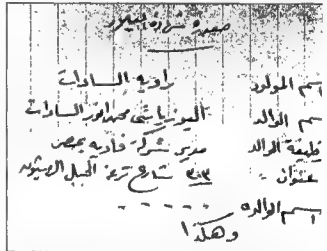 صورة شهادة ميلاد
اسم المولود راوية السادات
اسم الوالد اليوزباشى محمد أنور السادات
وظيفة الوالد مدير شركة
عنوان - ٣٠٣ شارع ترعة الجبل الزيتون
اسم الوالده - - - - -
وهكذا